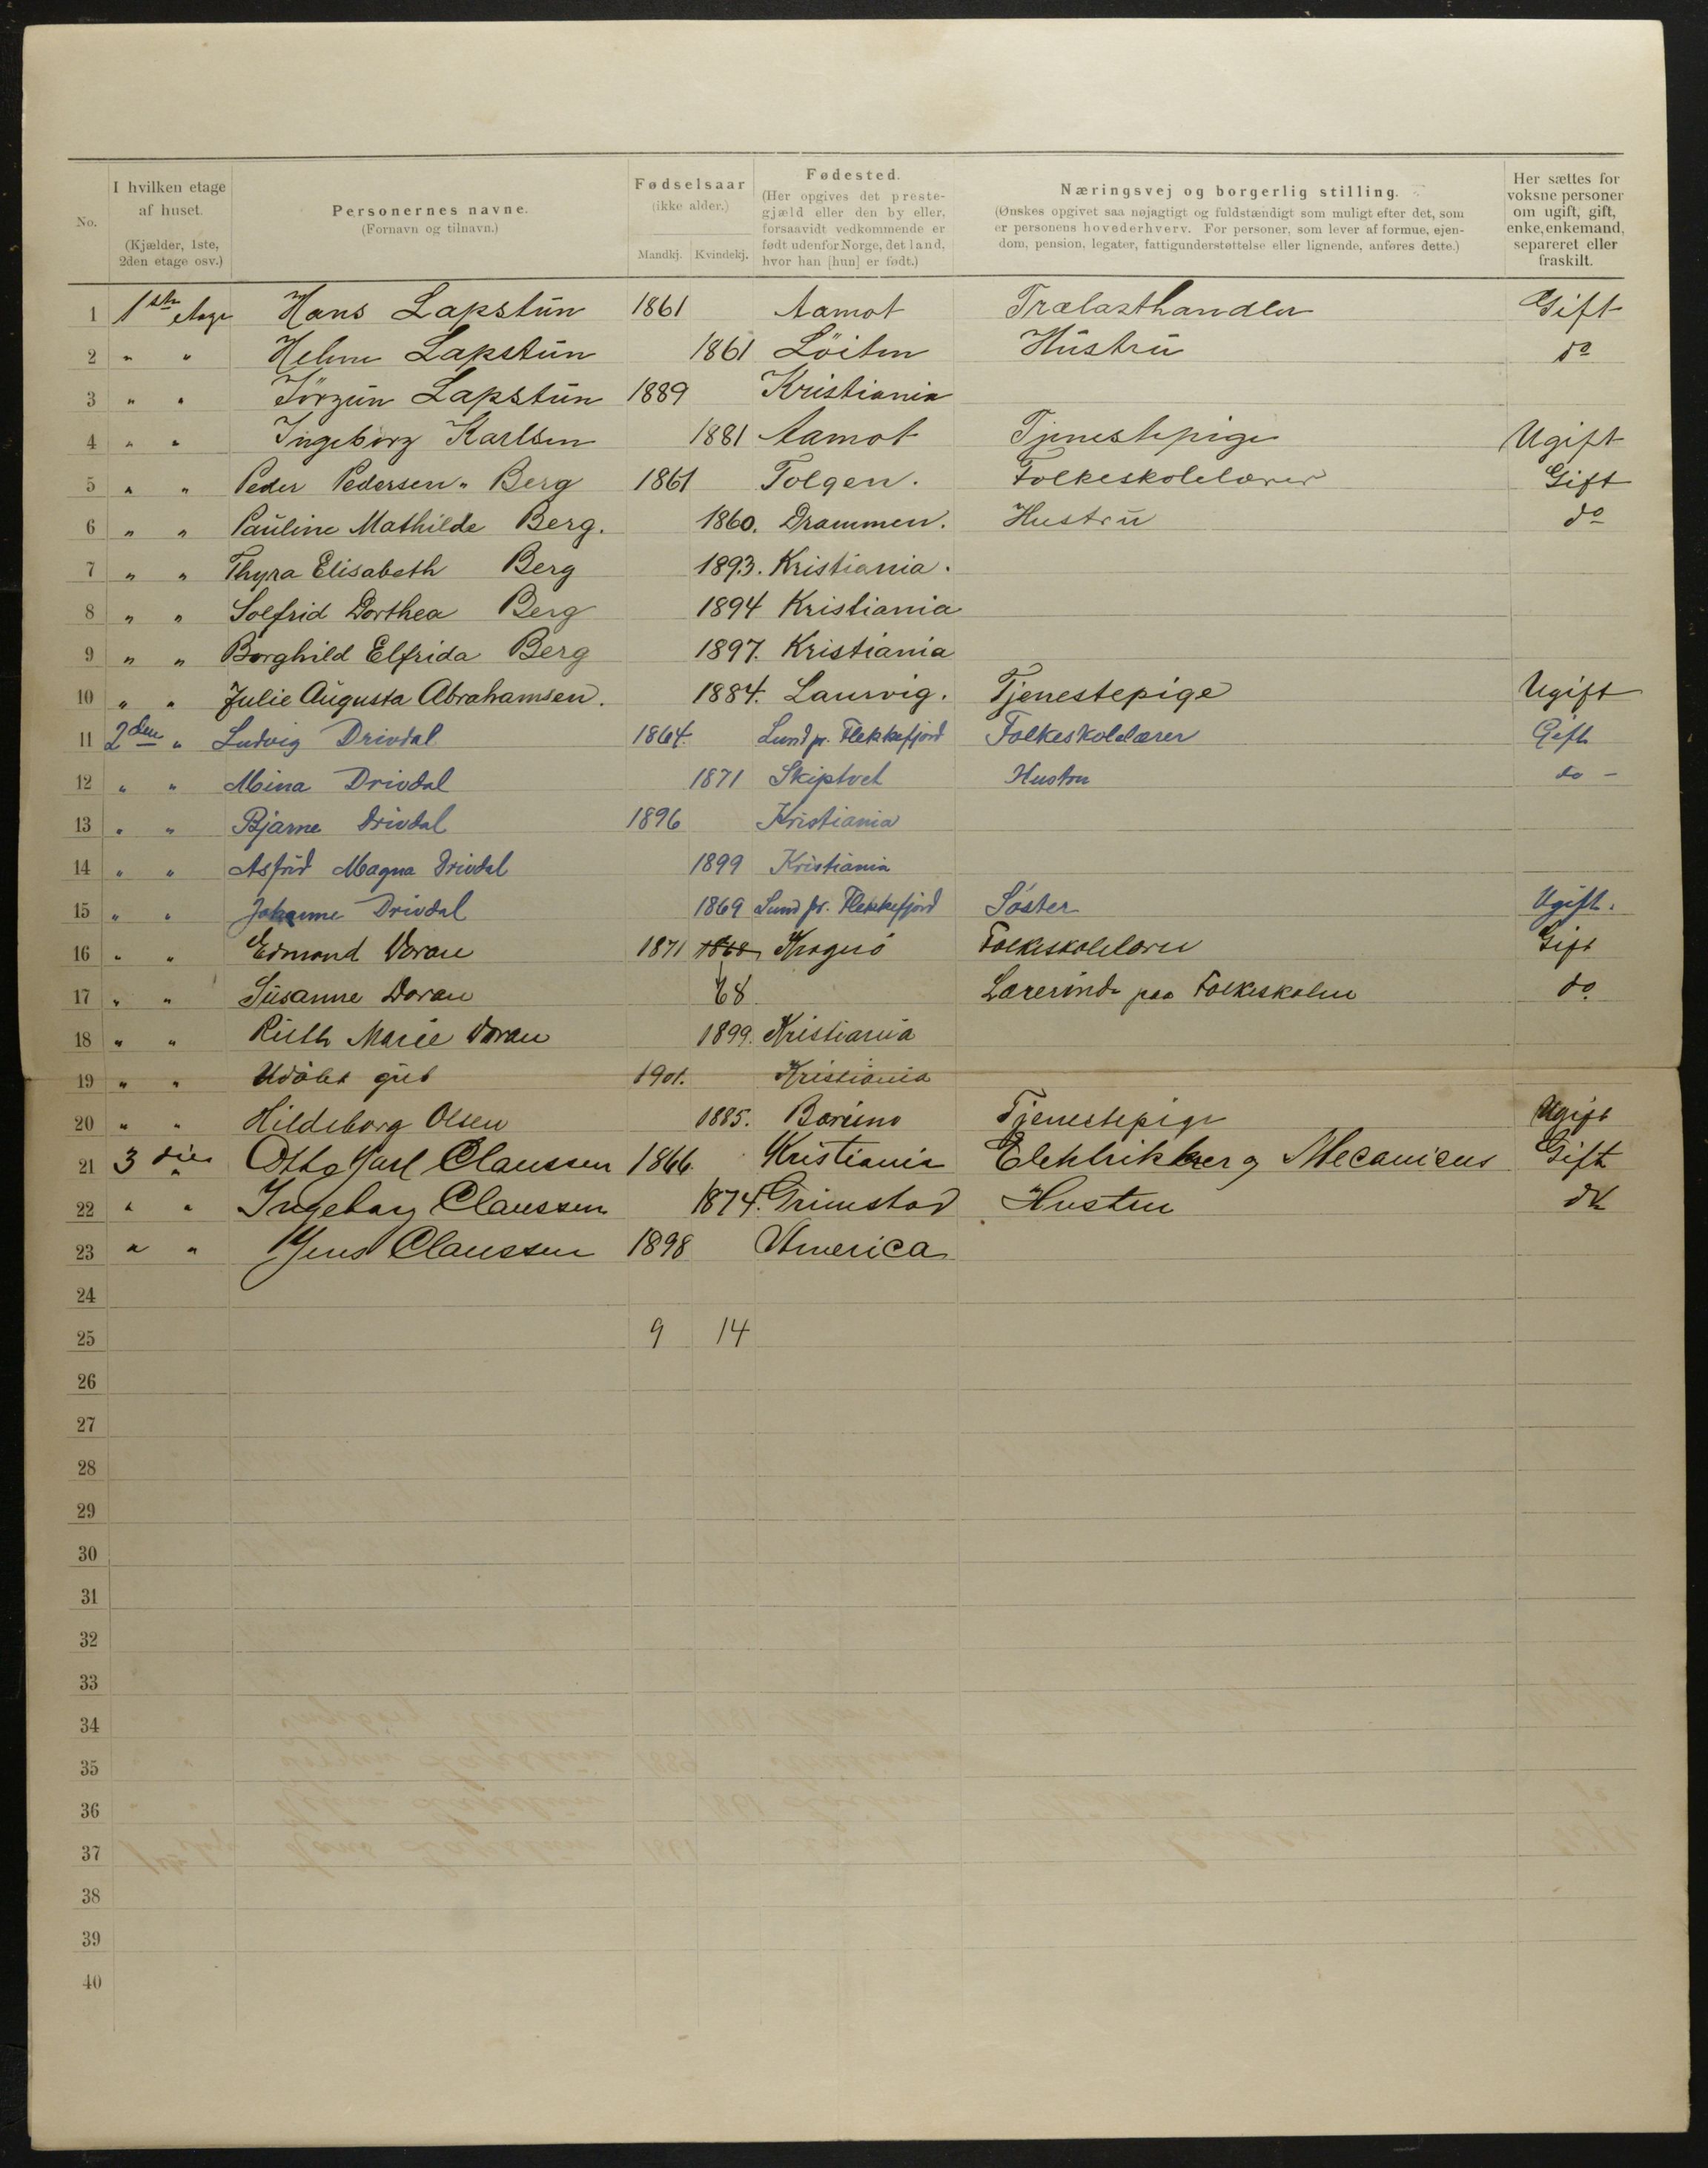 No. | I hvilken etage af huset. (Kjælder, 1ste, 2den etage osv.) | Personernes navne. (Fornavn og tilnavn.) | Fødselsaar (ikke alder.) Mandkj. Kvindekj. | Fødested. (Her opgives det prestegjæld eller den by eller, forsaavidt vedkommende er født udenfor Norge, det land, hvor han [hun] er født.) | Næringsvej og borgerlig stilling. (Ønskes opgivet saa nøjagtigt og fuldstændigt som muligt efter det, som er personens hovederhverv. For personer, som lever af formue, ejendom, pension, legater, fattigunderstøttelse eller lignende, anføres dette.) | Her sættes for voksne personer om ugift, gift, enke, enkemand, separeret eller fraskilt.
1 1ste etage Hans Lapstun 1861 Aamot Trælasthandler Gift
2 " " Helene Lapstun 1861 Löiten Hustru do
3 " " Jörgun Lapstun 1889 Kristiania
4 " " Ingeborg Karlsen 1881 Aamot Tjenestepige Ugift
5 " " Peder Pedersen " Berg 1861 Tolgen. Folkeskolelærer Gift
6 " " Pauline Mathilde Berg. 1860. Drammen. Hustru do
7 " " Thyra Elisabeth Berg 1893. Kristiania.
8 " " Solfrid Dorthea Berg 1894 Kristiania
9 " " Borghild Elfrida Berg 1897. Kristiania
10 " " Julie Augusta Abrahamsen. 1884. Laurvig. Tjenestepige Ugift
11 2den " Ludvig Drivdal 1864. Lund pr. Flekkefjord Folkeskolelærer Gift
12 " " Mina Drivdal 1871 Skiptvet Hustru do -
13 " " Bjarne Drivdal 1896 Kristiania
14 " " Asfrid Magna Drivdal 1899 Kristiania
15 " " Johanne Drivdal 1869 Lund pr. Flekkefjord Söster Ugift.
16 " " Edmond Doran 1871 1868 Kragerö Folkeskolelærer Gift
17 " " Susanne Doran 68 Lærerinde paa Folkeskolen do.
18 " " Ruth Marie Doran 1899. Kristiania
19 " " Udöbt gut 1901. Kristiania
20 " " Hildeborg Olsen 1885. Tjenestepige Ugift
21 3die " Otto Karl Claussen 1866. Kristiania Elektrikker og Mecanicus Gift
22 " " Ingeborg Claussen 1874. Grimstad Hustru
23 " " Jens Claussen 1898 America
24
25 9 14
26
27
28
29
30
31
32
33
34
35
36
37
38
39
40